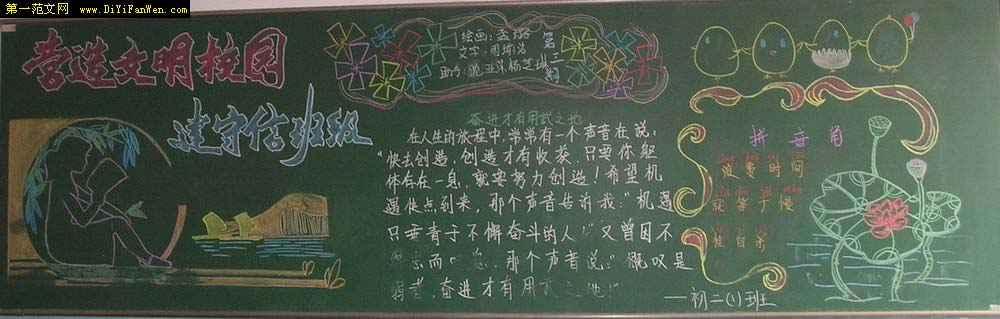 第一范文网
www.DiYiFanWen.com
营造文明校园
建守信班级
绘画:孟璐
文字:周
助手:姚亚萍杨芝琪
第三期
奋进才有用武之地
在人生的旅程中,常常有一个声音在说:
“快去创造,创造才有收获,只要你躯
体存在一息,就要努力创造!希望机
遇快点到来,那个声音告诉我:“机遇
只垂青于不懈奋斗的人!”又曾因不
而叹息,那个声音说:“慨叹是
弱者,奋进才有用武之地!”
拼音角
浪费时间
就等于慢
性自杀
——初二(1)班